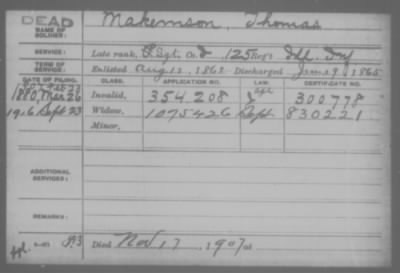 DEAD
NAME OF SOLDIER: Makemson, Thomas
SERVICE: Late rank, Sgt. Co. 125 Reg't Ill. Inf
TERM OF SERVICE: Enlisted Aug 12, 1862 Discharged June 9, 1865
DATE OF FILING. CLASS. APPLICATION NO. LAW. CERTIFICATE NO.
1880, Mar 26 Invalid, 354208 300778
1916 Sept 23 Widow, 1075426 Sept. 830221
Minor,
ADDITIONAL SERVICES:
REMARKS:
Died Nov 17, 1907 at